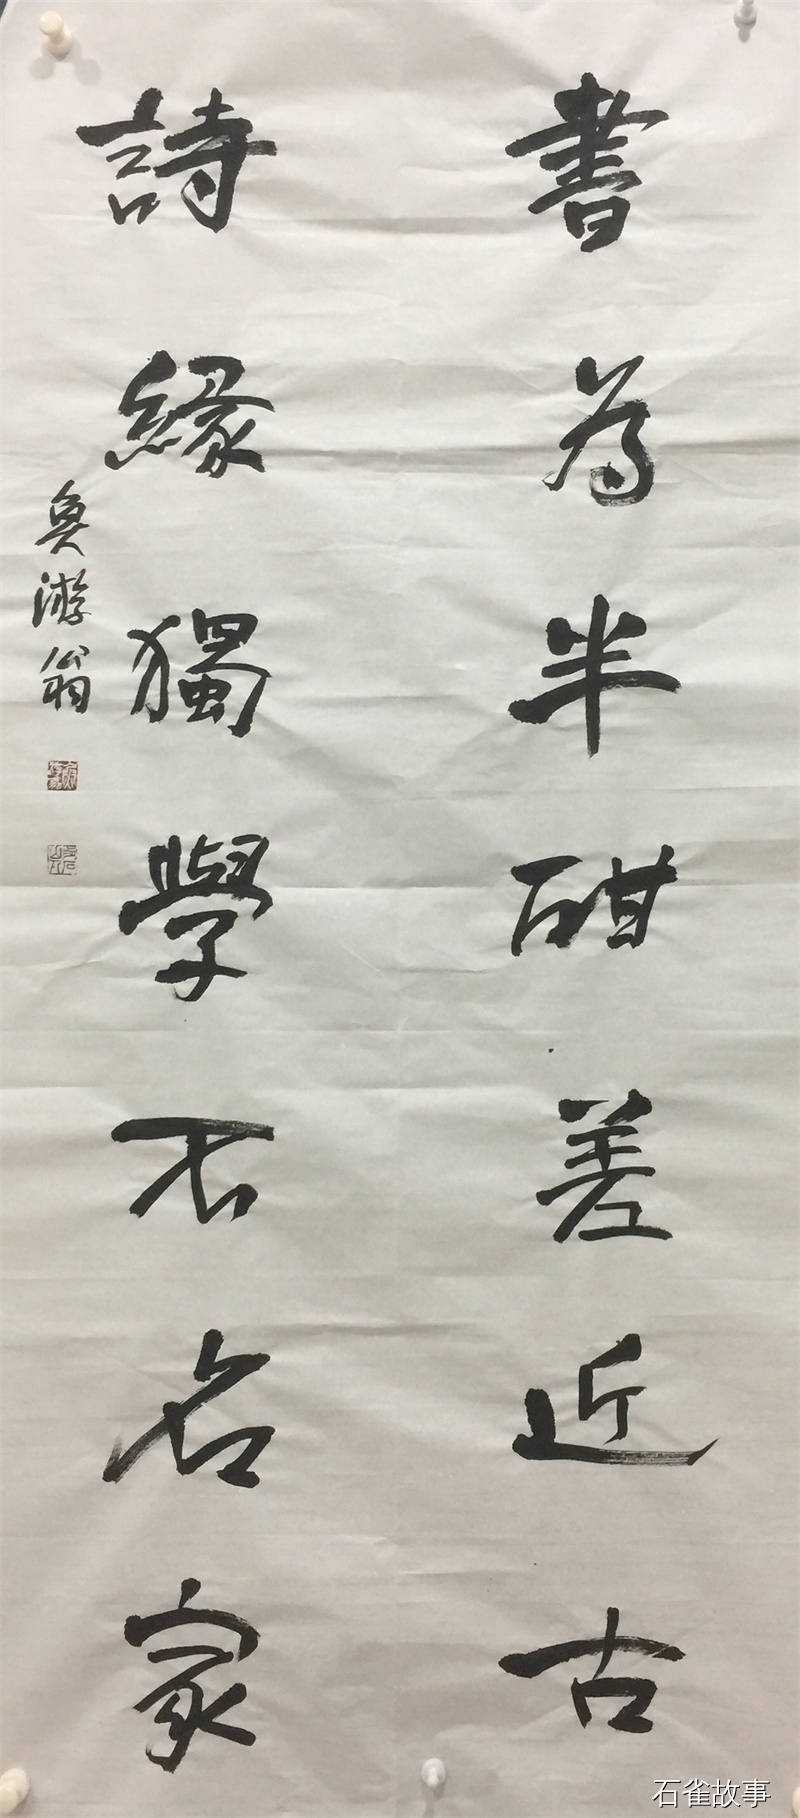 書為半酣差近古
詩緣獨學不名家
奐游翁
石雀故事